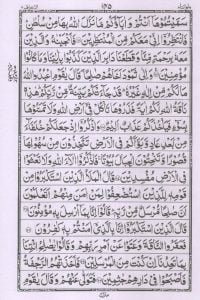 ١٤٥
سَمَّيْتُمُوْهَاۤ اَنْتُمْ وَاٰبَآؤُكُمْ مَّا نَزَّلَ اللّٰهُ بِهَا مِنْ سُلْطٰنٍ
فَانْتَظِرُوْۤا اِنِّيْ مَعَكُمْ مِّنَ الْمُنْتَظِرِيْنَ فَاَنْجَيْنٰهُ وَالَّذِيْنَ
مَعَهٗ بِرَحْمَةٍ مِّنَّا وَقَطَعْنَا دَابِرَ الَّذِيْنَ كَذَّبُوْا بِاٰيٰتِنَا وَمَا كَانُوْا
مُؤْمِنِيْنَ وَاِلٰى ثَمُوْدَ اَخَاهُمْ صٰلِحًا قَالَ يٰقَوْمِ اعْبُدُوا اللّٰهَ
مَا لَكُمْ مِّنْ اِلٰهٍ غَيْرُهٗ قَدْ جَآءَتْكُمْ بَيِّنَةٌ مِّنْ رَّبِّكُمْ هٰذِهٖ
نَاقَةُ اللّٰهِ لَكُمْ اٰيَةً فَذَرُوْهَا تَاْكُلْ فِيْۤ اَرْضِ اللّٰهِ وَلَا تَمَسُّوْهَا
بِسُوْٓءٍ فَيَاْخُذَكُمْ عَذَابٌ اَلِيْمٌ وَاذْكُرُوْۤا اِذْ جَعَلَكُمْ خُلَفَآءَ
مِنْۢ بَعْدِ عَادٍ وَّبَوَّاَكُمْ فِي الْاَرْضِ تَتَّخِذُوْنَ مِنْ سُهُوْلِهَا
قُصُوْرًا وَّتَنْحِتُوْنَ الْجِبَالَ بُيُوْتًا فَاذْكُرُوْۤا اٰلَآءَ اللّٰهِ وَلَا تَعْثَوْا
فِي الْاَرْضِ مُفْسِدِيْنَ قَالَ الْمَلَاُ الَّذِيْنَ اسْتَكْبَرُوْا مِنْ
قَوْمِهٖ لِلَّذِيْنَ اسْتُضْعِفُوْا لِمَنْ اٰمَنَ مِنْهُمْ اَتَعْلَمُوْنَ
اَنَّ صٰلِحًا مُّرْسَلٌ مِّنْ رَّبِّهٖ قَالُوْۤا اِنَّا بِمَاۤ اُرْسِلَ بِهٖ مُؤْمِنُوْنَ
قَالَ الَّذِيْنَ اسْتَكْبَرُوْۤا اِنَّا بِالَّذِيْۤ اٰمَنْتُمْ بِهٖ كٰفِرُوْنَ
فَعَقَرُوا النَّاقَةَ وَعَتَوْا عَنْ اَمْرِ رَبِّهِمْ وَقَالُوْا يٰصٰلِحُ ائْتِنَا
بِمَا تَعِدُنَاۤ اِنْ كُنْتَ مِنَ الْمُرْسَلِيْنَ فَاَخَذَتْهُمُ الرَّجْفَةُ
فَاَصْبَحُوْا فِيْ دَارِهِمْ جٰثِمِيْنَ فَتَوَلّٰى عَنْهُمْ وَقَالَ يٰقَوْمِ